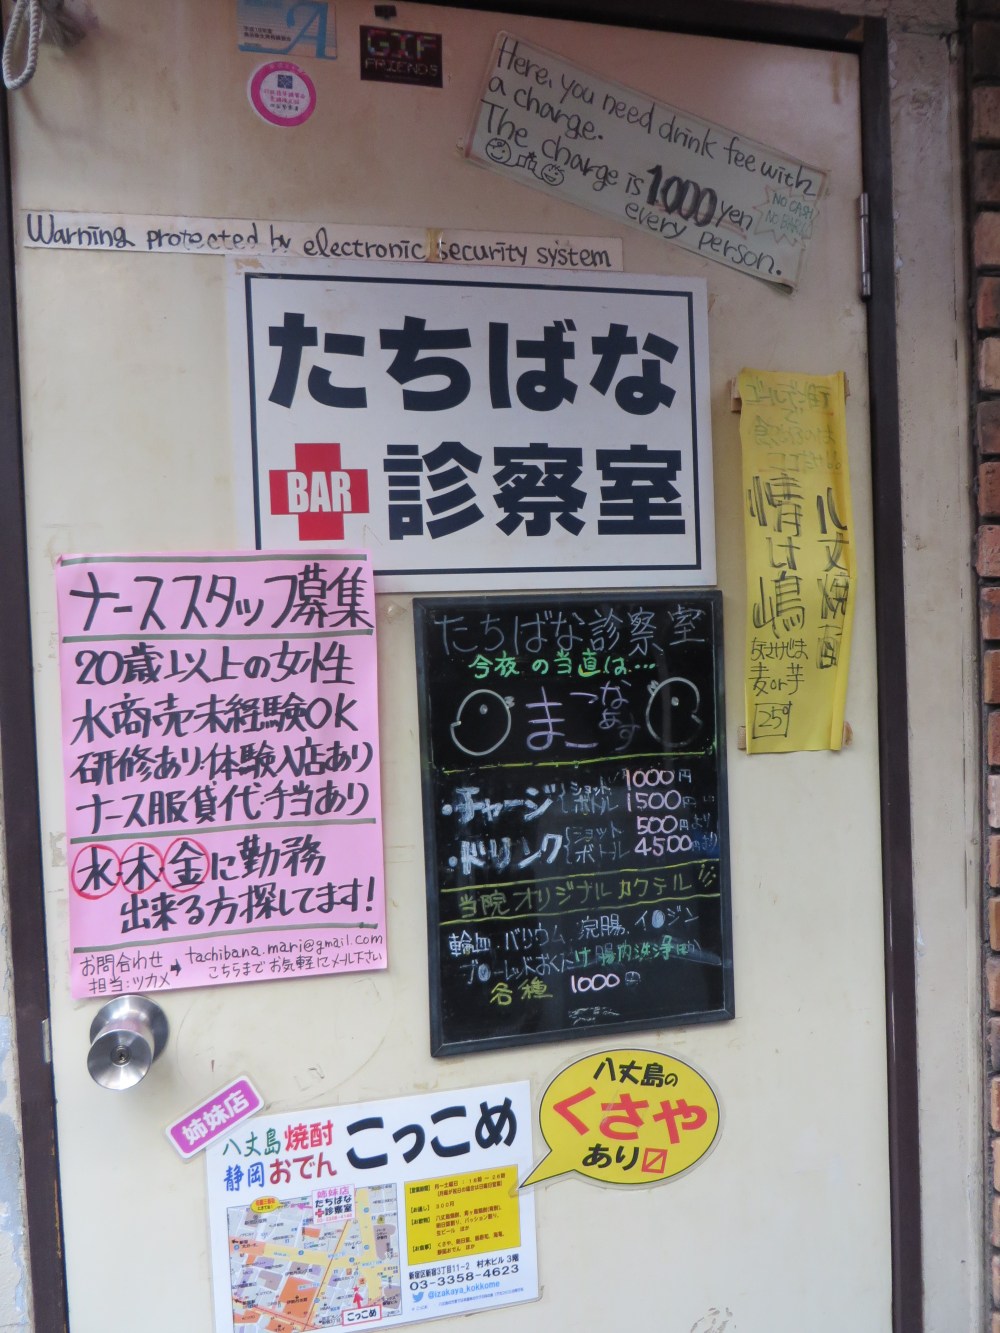 A
GIF
FRIENDS
Here, you need drink fee with
a charge.
The charge is 1000 yen
every person.
NO CASH
Warning protected by electronic security system
たちばな
BAR 診察室
情け嶋
八丈焼酎
なさけじま
麦or芋
25°
ナーススタッフ募集
20歳以上の女性
水商売未経験OK
研修あり・体験入店あり
ナース服貸代・手当あり
水・木・金に勤務
出来る方探してます!
お問合わせ
担当:ツカメ
tachibana.mari@gmail.com
こちらまでお気軽にメール下さい
たちばな診察室
今夜の当直は…
まこ
・チャージ
ショット 1000円
ボトル 1500円
・ドリンク
ショット 500円より
ボトル 4500円より
当院オリジナルカクテル
輸血・バリウム・浣腸・イ●ジン
腸内洗浄ほか
各種 1000円
姉妹店
八丈島焼酎
静岡おでん
こっこめ
八丈島の
くさや
あり〼
姉妹店
たちばな
診察室
こっこめ
新宿区新宿3丁目11-2 村木ビル3階
03-3358-4623
@izakaya_kokkome